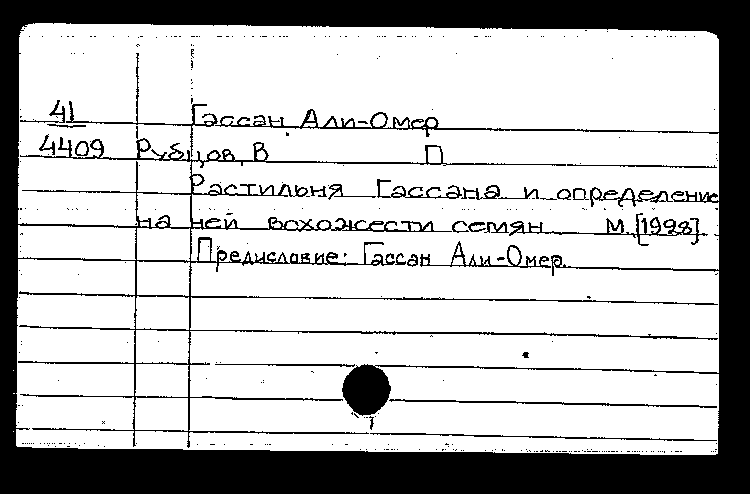 41 Гассан Али-Омер
4409 Рубцов, В П
Растильня Гассана и определение
на ней всхожести семян М. [1928]
Предисловие: Гассан Али-Омер.